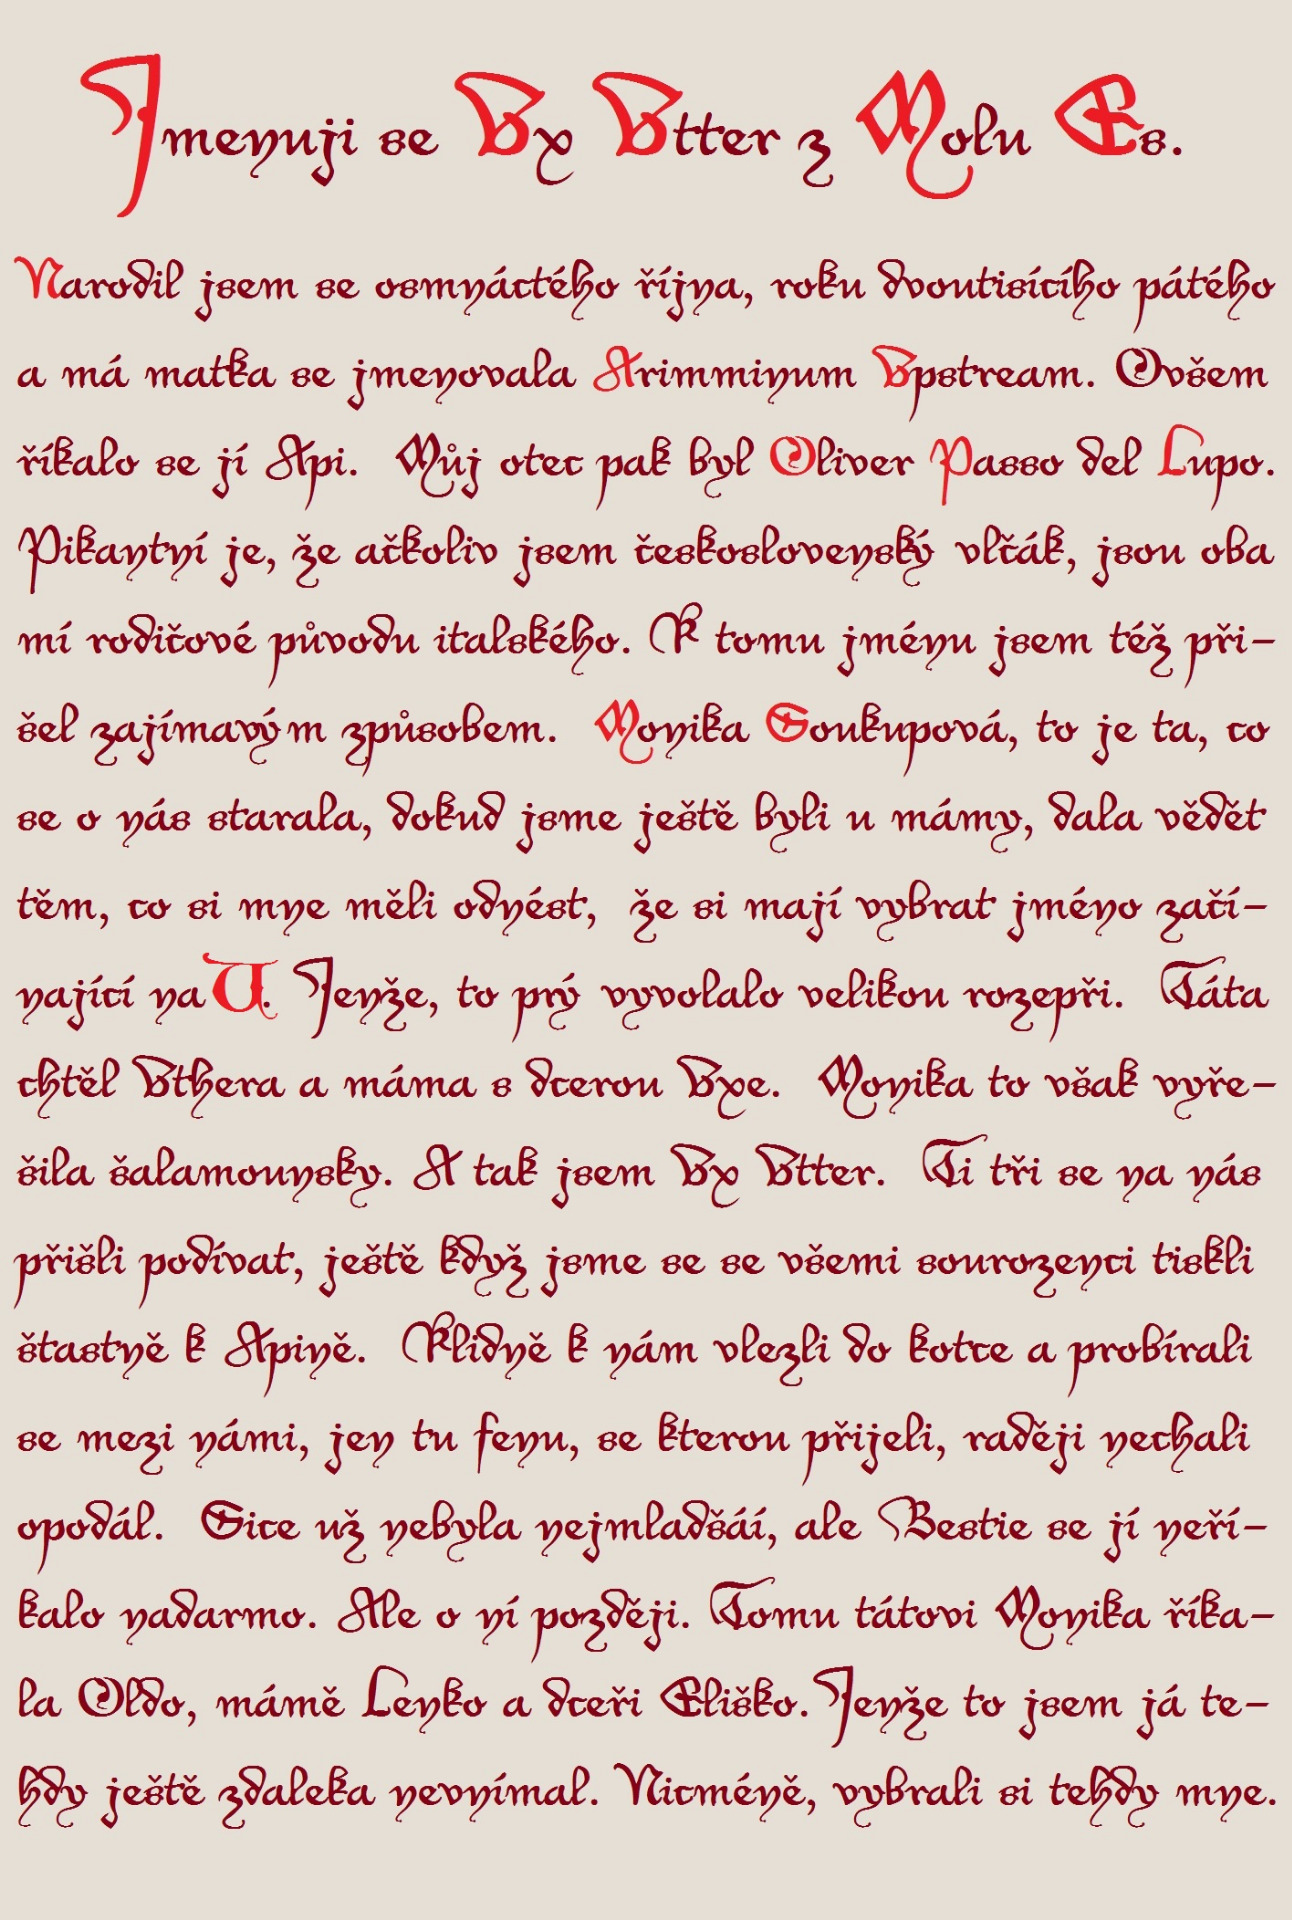 Jmenuji se Ux Utter z Molu Es.
Narodil jsem se osmnáctého října, roku dvoutisícího pátého
a má matka se jmenovala Arimminum Upstream. Ovšem
říkalo se jí Api. Můj otec pak byl Oliver Passo del Lupo.
Pikantní je, že ačkoliv jsem československý vlčák, jsou oba
mí rodičové původu italského. K tomu jménu jsem též při-
šel zajímavým způsobem. Monika Soukupová, to je ta, co
se o nás starala, dokud jsme ještě byli u mámy, dala vědět
těm, co si mne měli odnést, že si mají vybrat jméno začí-
nající na U. Jenže, to prý vyvolalo velikou rozepři. Táta
chtěl Uthera a máma s dcerou Uxe. Monika to však vyře-
šila šalamounsky. A tak jsem Ux Utter. Ti tři se na nás
přišli podívat, ještě když jsme se se všemi sourozenci tiskli
štastně k Apině. Klidně k nám vlezli do kotce a probírali
se mezi námi, jen tu fenu, se kterou přijeli, raději nechali
opodál. Sice už nebyla nejmladšáí, ale Bestie se jí neří-
kalo nadarmo. Ale o ní později. Tomu tátovi Monika říka-
la Oldo, mámě Lenko a dceři Eliško. Jenže to jsem já te-
hdy ještě zdaleka nevnímal. Nicméně, vybrali si tehdy mne.